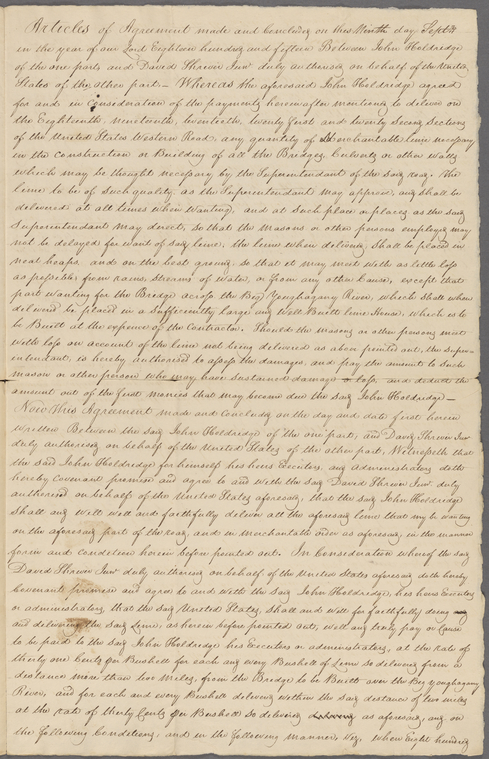 Articles of Agreement made and Concluded on this Ninth day Septr
in the year of our Lord Eighteen hundred and fifteen Between John Holdredge
of the one part, and David Shriver Junr duly authorised on behalf of the United
States of the other part – Whereas the aforesaid John Holdredge agreed
for and in Consideration of the payments hereinafter mentioned to deliver on
the Eighteenth, nineteenth, twentieth, twenty first and twenty second Sections
of the United States Western Road, any quantity of Merchantable lime necessary
in the construction or Building of all the Bridges, Culverts or other Walls
which may be thought necessary by the Superintendant of the said road. The
lime to be of such quality as the Superintendant may approve, and shall be
delivered at all times when Wanting, and at such place or places as the said
Superintendant may direct, so that the Masons or other persons employed may
not be delayed for want of said lime. the lime when delivered, shall be placed in
neat heaps and on the best ground, so that it may meet with as little loss
as possible from rains, Streams of Water, or from any other Cause, except that
part wanting for the Bridge across the Big Youghagany River, which shall when
delivered be placed in a Sufficiently large and Well Built lime House, which is to
be Built at the expence of the Contractor. Should the Masons or other persons meet
with loss on account of the lime not being delivered as above pointed out, the Super-
intendant, is hereby authorised to assess the damages, and pay the amount to Such
mason or other person who may have sustained damage or loss, and deduct the
amount out of the first monies that may become due the said John Holdredge –
Now this Agreement made and Concluded on the day and date first herein
written Between the said John Holdredge of the one part, and David Shriver Junr
duly authorised on behalf of the United States of the other part, Witnesseth that
the said John Holdredge for himself his heirs Executors, and administrators doth
hereby Covenant promise and agree to and with the said David Shriver Junr duly
authorised on behalf of the United States aforesaid, that the said John Holdredge
shall and will well and faithfully deliver all the aforesaid lime that may be wanting
on the aforesaid part of the road, and in Merchantable order as aforesaid, in the manner
form and condition herein before pointed out. In Consideration whereof the said
David Shriver Junr duly authorised on behalf of the United States aforesaid doth hereby
Covenant promise and agree to and with the said John Holdredge, his heirs Executors
or administrators, that the said United States, shall and will for faithfully doing
and delivering the said lime, as herein before pointed out, well and truly pay or Cause
to be paid to the said John Holdredge his Executors or administrators, at the rate of
thirty one Cents per Bushell for each and every Bushell of Lime so delivered from a
distance more than two miles, from the Bridge to be Built over the Big Youghagany
River, and for each and every Bushell delivered within the said distance of two miles
at the rate of thirty Cents per Bushell so delivered as aforesaid, and on
the following Conditions, and in the following manner, Viz. when Eight hundred